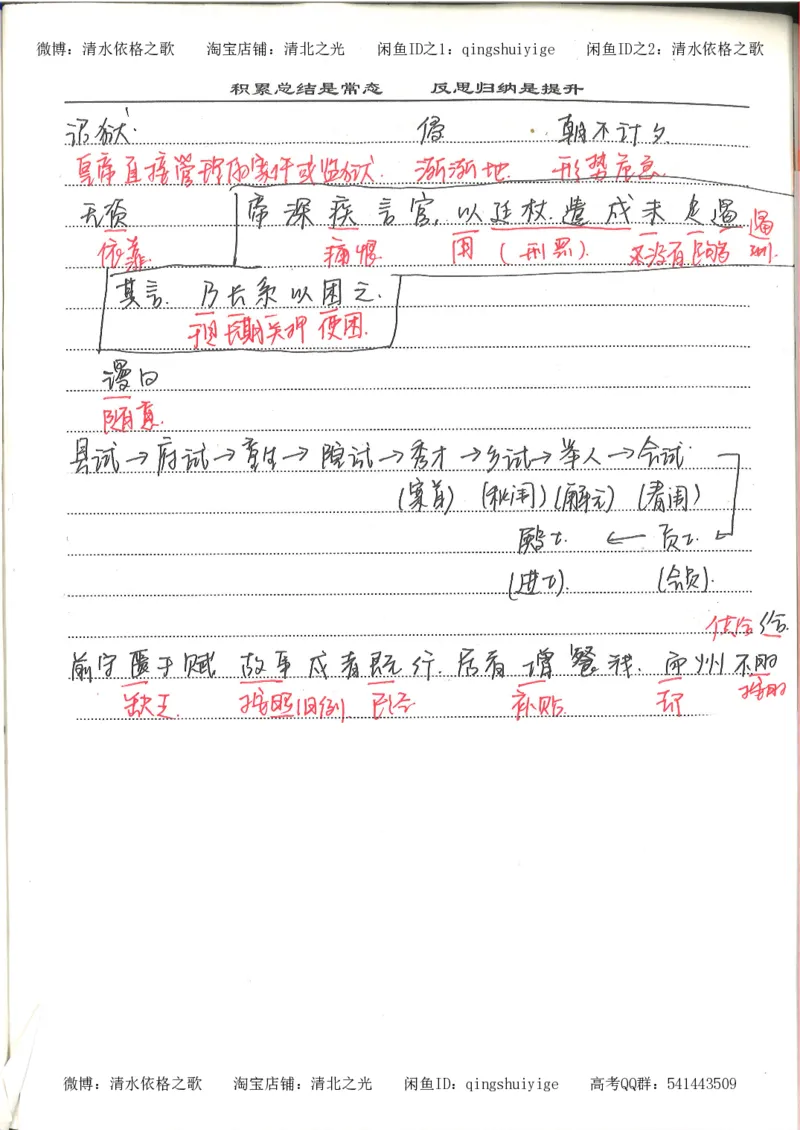 微博：清水依格之歌 淘宝店铺：清北之光 闲鱼ID之1：qingshuiyige 闲鱼ID之2：清水依格之歌
积累总结是常态 反思归纳是提升
诏狱. 侵 朝不计夕.
皇帝直接管理的案件或监狱. 渐渐地. 形势危急.
无资 帝深疾言官，以廷杖.遣戍未足遏 遏
依靠. 痛恨. 用 (刑罚). 还没有 能够 制.
其言. 乃长系以困之.
于是 长期关押 使困.
谩曰
随意.
县试→府试→童生→院试→秀才→乡试→举人→会试.
(案首) (秋闱) (解元) (春闱)
殿士. ← 贡士.
(进士). (会员).
供给 给.
前守匮于赋 故事 戍者既行. 居者增餐钱. 而州不时
缺乏. 按照旧例 已经 补贴. 按时
微博：清水依格之歌 淘宝店铺：清北之光 闲鱼ID：qingshuiyige 高考QQ群：541443509